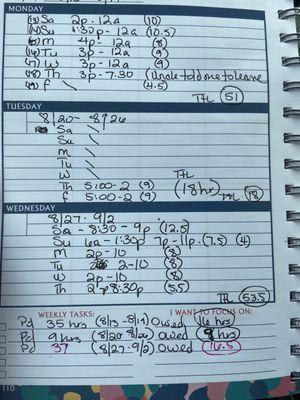 MONDAY
(13) Sa 2p - 12a (10)
(14) Su 1:30p - 12a (10.5)
(15) M 4p - 12a (8)
(16) Tu 3p - 12a (9)
(17) W 3p - 12a (9)
(18) Th 3p - 7:30 (Uncle told me to leave
(19) F \ (4.5)
TTL (51)
TUESDAY
8/20 - 8/26
Sa \
Su \
M \
Tu \
W \
TTL
Th 5:00-2 (9) (18hr)
F 5:00-2 (9) TTL (18)
WEDNESDAY
8/27 - 9/2
Sa - 8:30 - 9p (12.5)
Su 6a - 1:30p 7p-11p (7.5) (4)
M 2p - 10 (8)
Tu 2-10 (8)
W 2p - 10 (8)
Th 2p 8:30p (5.5)
TTL (53.5)
WEEKLY TASKS: I WANT TO FOCUS ON:
Pd 35 hrs Owed (16 hrs)
Pd 9 hrs (8/20 8/26) owed (9 hrs)
Pd 37 (8/27 - 9/2) owed (16.5)
110